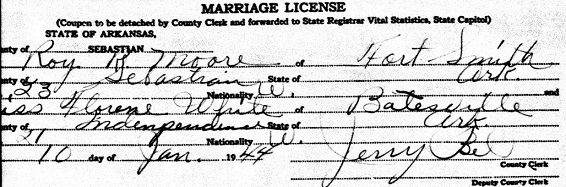 MARRIAGE LICENSE
(Coupon to be detached by County Clerk and forwarded to State Registrar Vital Statistics, State Capitol)
STATE OF ARKANSAS,
nty of SEBASTIAN
Roy R. Moore of Fort Smith
nty of Sebastian State of Ark
23 Nationality W. and
iss Florene White of Batesville
nty of Indenpendence State of Ark
21 Nationality W.
10 day of Jan. 1944 Jerry
County Clerk
Deputy County Clerk